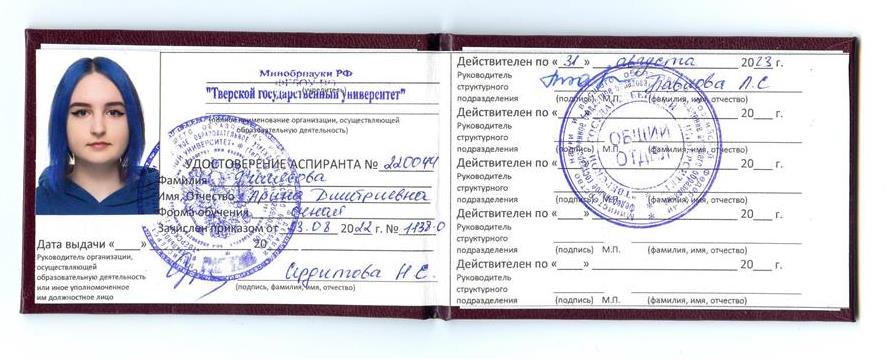 Минобрнауки РФ
ФГБОУ ВО
(учредитель)
"Тверской государственный университет"
(полное наименование организации, осуществляющей
образовательную деятельность)
УДОСТОВЕРЕНИЕ АСПИРАНТА № 220044
Фамилия
Имя, Отчество Арина Дмитриевна
Форма обучения очная
Зачислен приказом от 08 2022 г. № 1138-О
Дата выдачи «____» 20
Руководитель организации,
осуществляющей
образовательную деятельность
или иное уполномоченное
им должностное лицо
Н С.
(подпись, фамилия, имя, отчество)
Действителен по «31» августа 2023 г.
Руководитель
структурного
подразделения
Л. С
(подпись) М.П. (фамилия, имя, отчество)
ОБЩИЙ
ОТДЕЛ
Действителен по «____» 20___ г.
Руководитель
структурного
подразделения
(подпись) М.П. (фамилия, имя, отчество)
Действителен по «____» 20___ г.
Руководитель
структурного
подразделения
(подпись) М.П. (фамилия, имя, отчество)
Действителен по «____» 20___ г.
Руководитель
структурного
подразделения
(подпись) М.П. (фамилия, имя, отчество)
Действителен по «____» 20___ г.
Руководитель
структурного
подразделения
(подпись) М.П. (фамилия, имя, отчество)